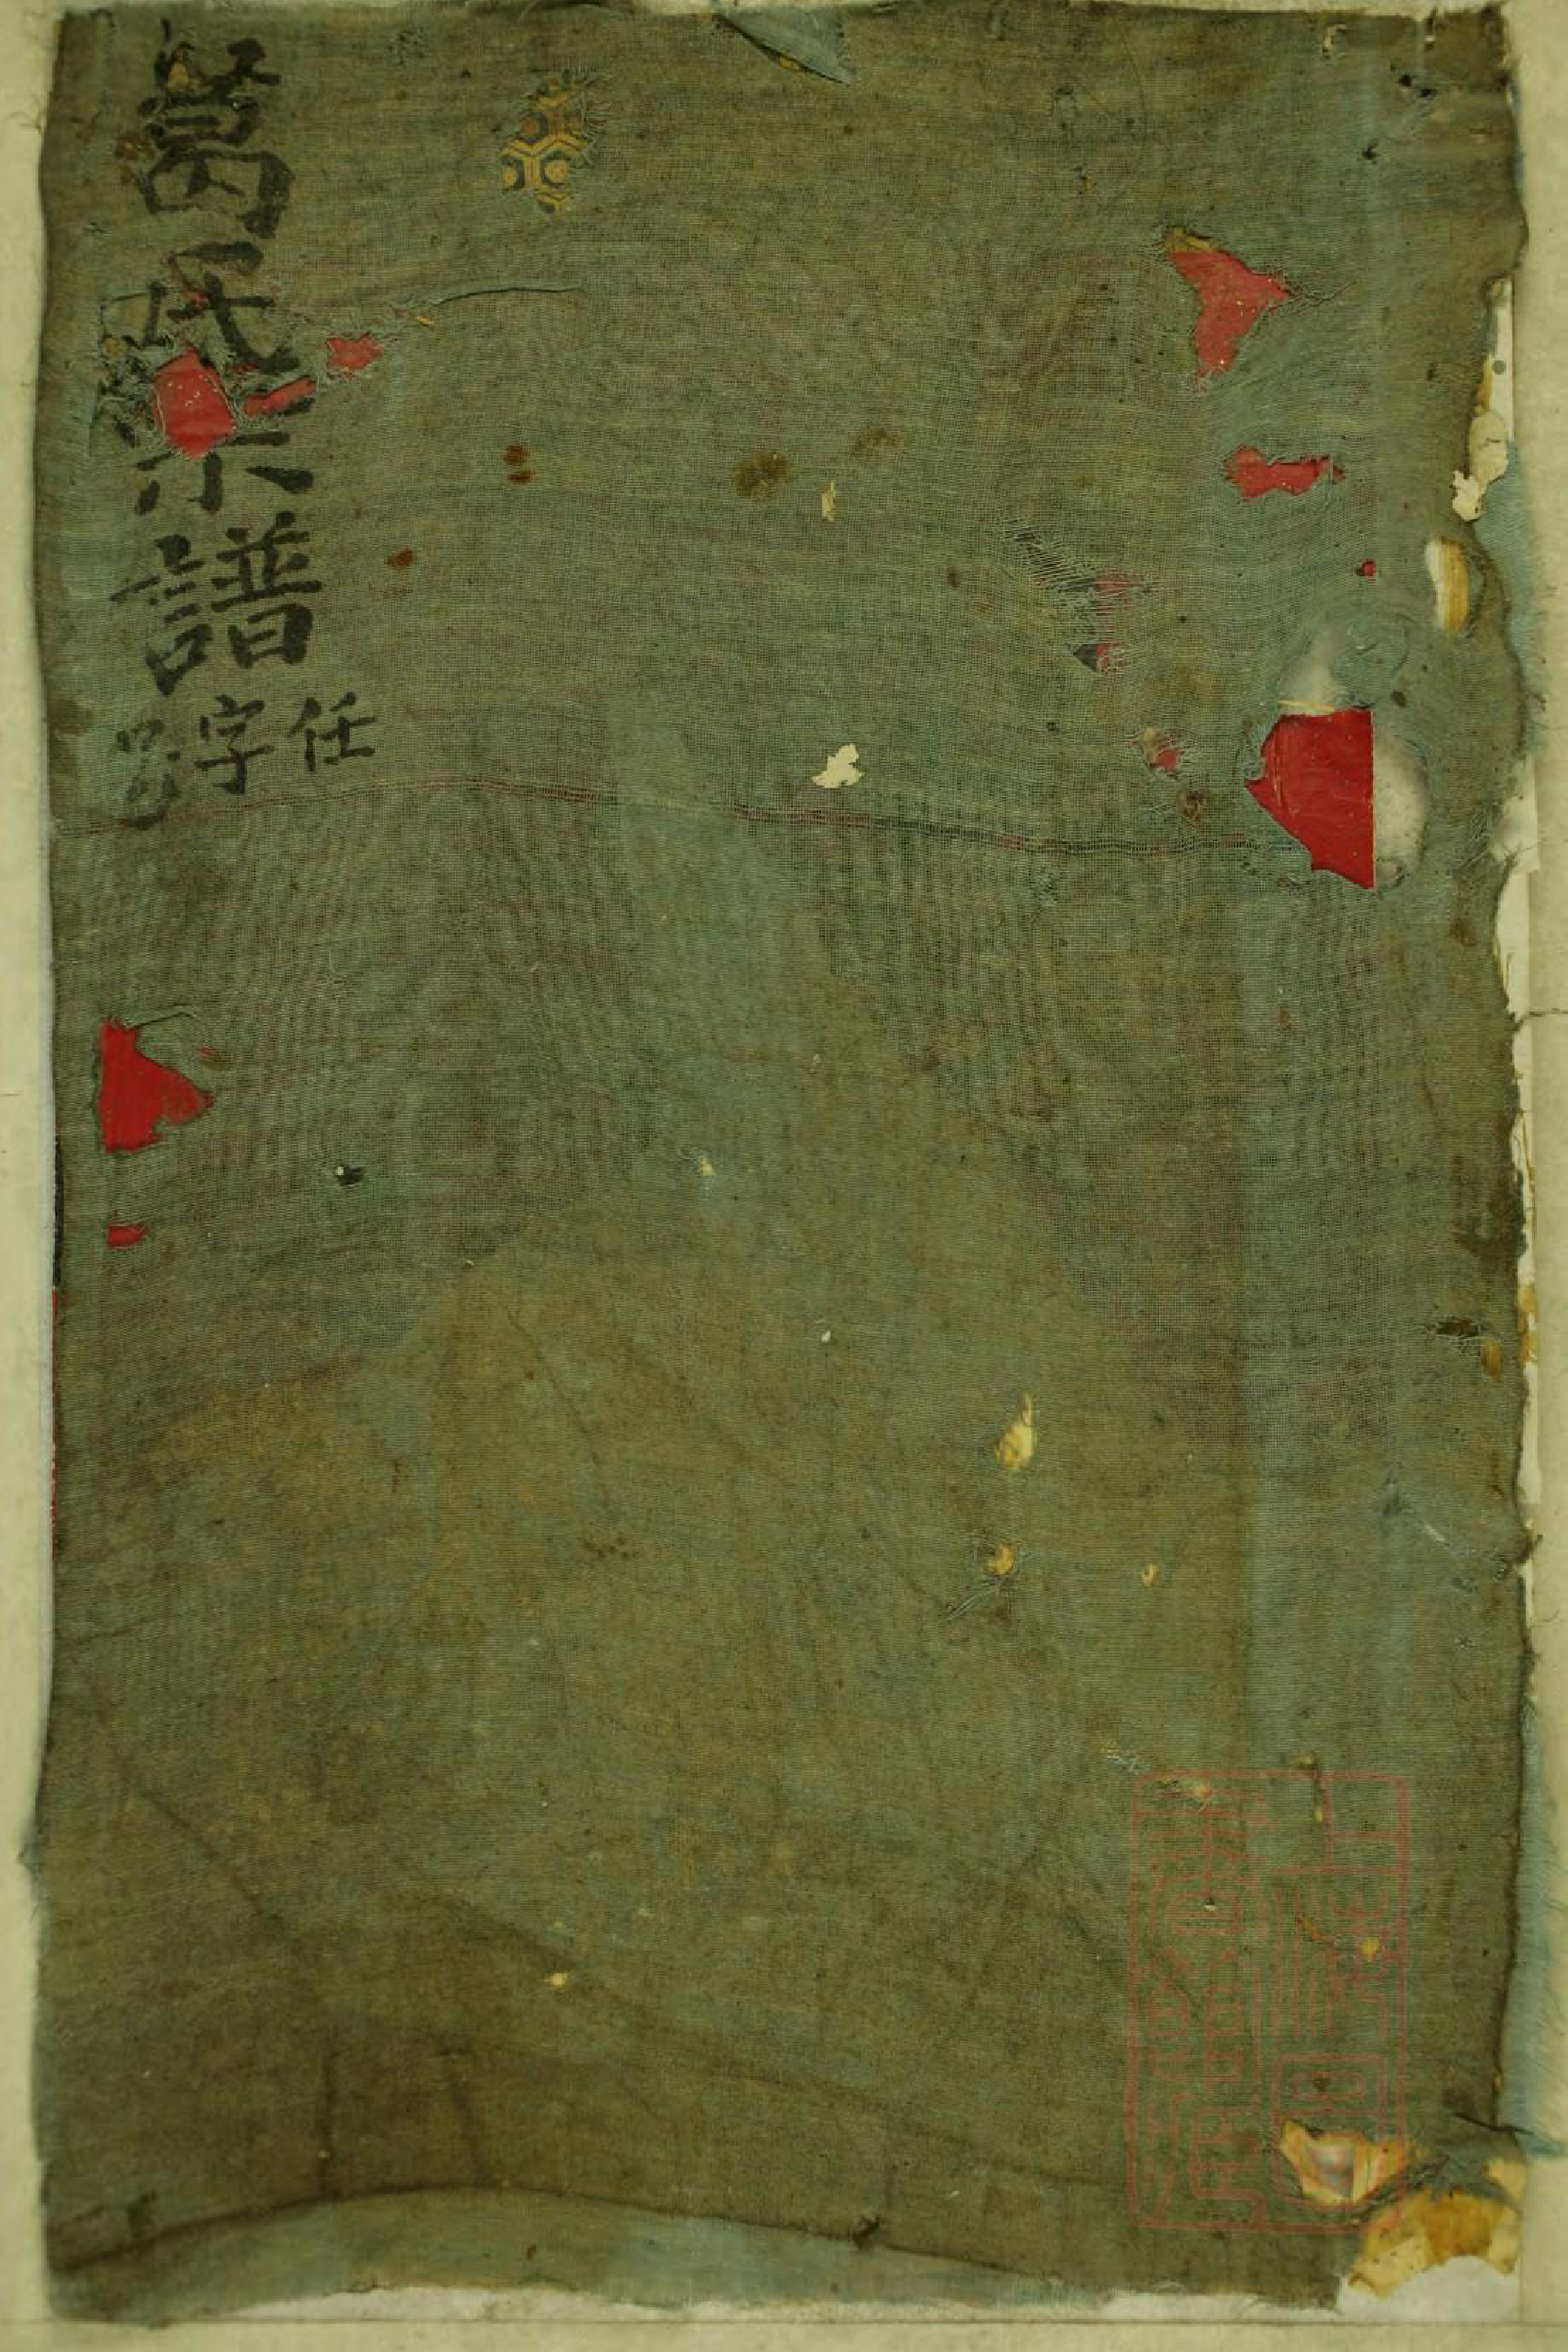 葛氏宗譜
任字号
上海圖
書館藏